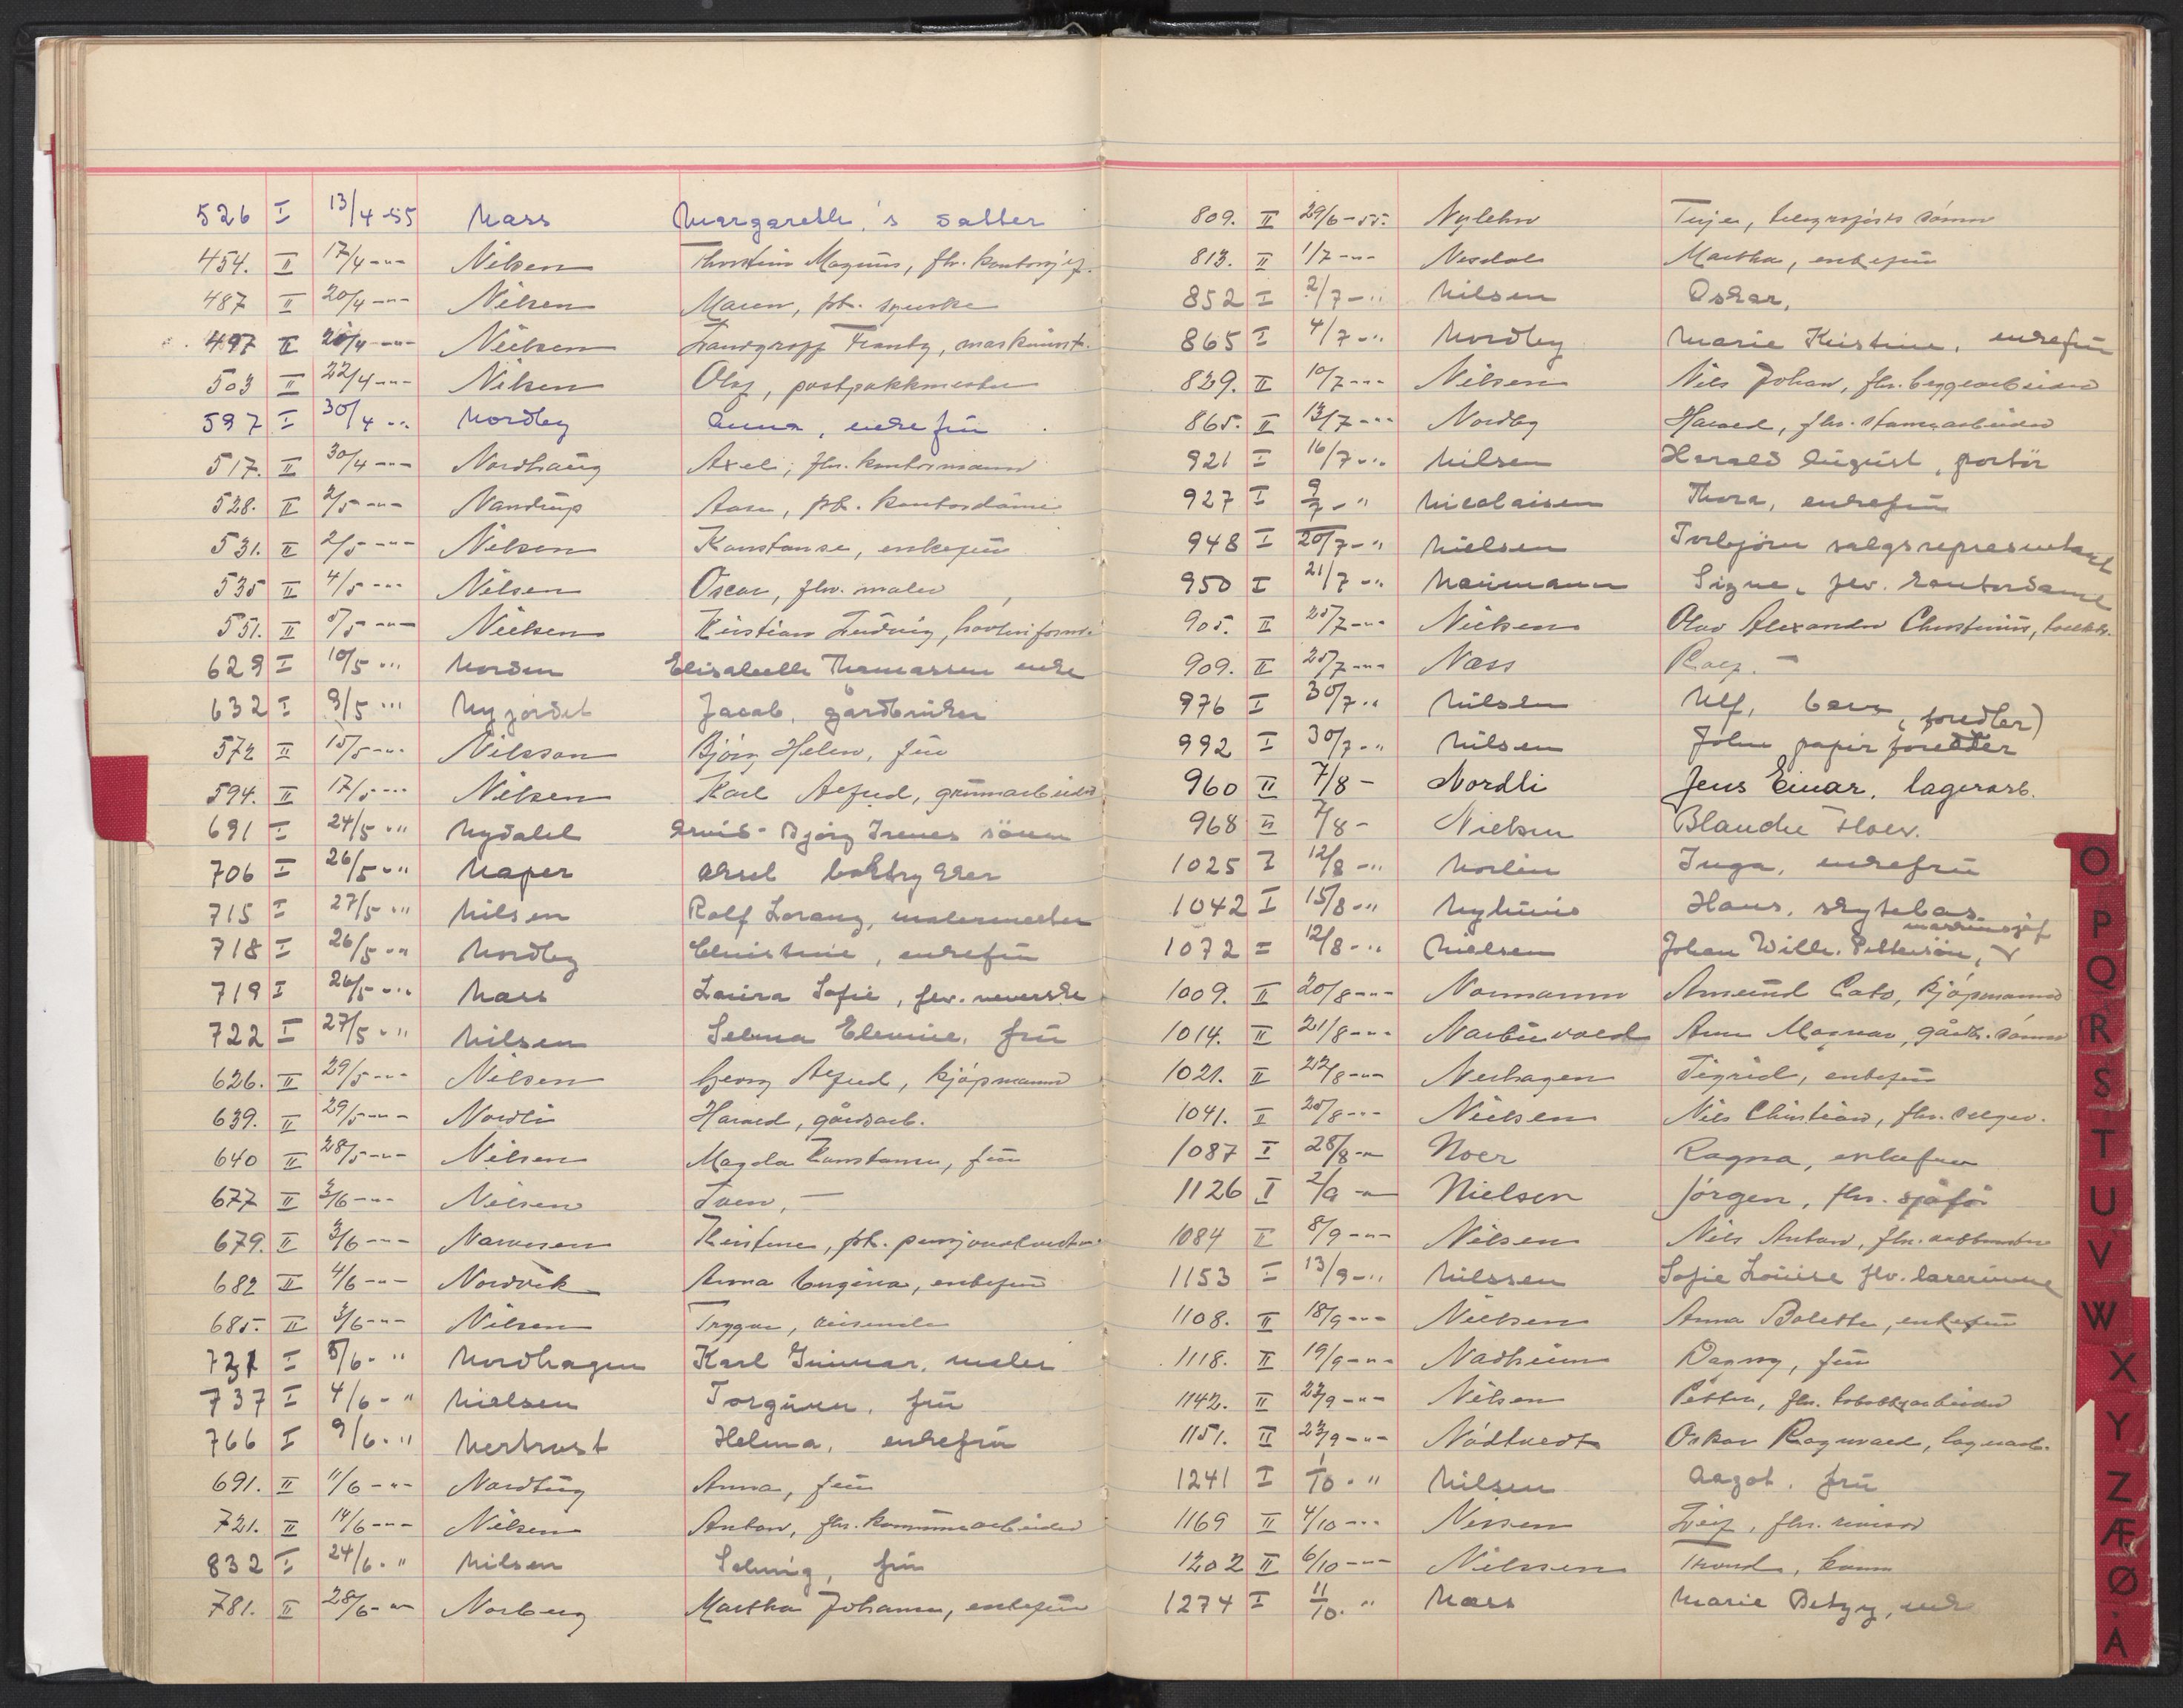 526 I 13/4-55 Næss Margareth's datter
454. II 17/4 -"- Nilsen Thorstein Magnus, fhv. kontorsjef.
487 II 20/4 -"- Nilsen Maren, frk. syerske
497 II 20/4 -"- Nielsen Frantz, maskinist.
503 II 22/4 -"- Nilsen Olaf, postpakkmester
597 I 30/4 -"- Nordby Anna, enkefru
517. II 30/4 -"- Nordhaug Axel, fhv. kontormann
528. II 2/5 -"- Nandrup Aase, frk. kontordame
531. II 2/5 -"- Nilsen Konstanse, enkefru
535 II 4/5 -"- Nilsen Oscar, fhv. maler
551. II 5/5 -"- Nielsen Kristian Ludvig,
629 I 10/5 -"- Norden Elisabeth Thomassen enke
632 I 9/5 -"- Nyjordet Jacob, gårdbruker
572 II 15/5 -"- Nilsson Bjørg Helen, fru
594. II 17/5 -"- Nilsen Karl Alfred, grunnarbeider
691 I 24/5 -"- Nydahl Arvid - Bjørg Irenes sønn
706 I 26/5 -"- Naper Aksel boktrykker
715 I 27/5 -"- Nilsen Rolf Lorang, malermester
718 I 26/5 -"- Nordby Christine, enkefru
719 I 26/5 -"- Næss Laura Sofie, fhv. veverske
722 I 27/5 -"- Nilsen Selma Elenine, fru
626. II 29/5 -"- Nilsen Georg Alfred, kjøpmann
639. II 29/5 -"- Nordli Harald, gårdsarb.
640 II 28/5 -"- Nilsen Magda Konstanse, fru
677 II 3/6 -"- Nilsen Sven, —
679. II 3/6 -"- Narvesen Kristine, frk.
682 II 4/6 -"- Nordvik Anna Eugenia, enkefru
685. II 3/6 -"- Nilsen Trygve, reisende
731 I 5/6 -" Nordhagen Karl Gunnar, maler
737 I 4/6 -" Nielsen Torgunn, fru
766 I 9/6 -" Nertrost Helma, enkefru
691. II 11/6 -"- Nardtug Anna, fru
721. II 14/6 -"- Nilsen Anton, fhv. kommunearbeider
832 I 24/6 -" Nilsen Solveig, fru
781. II 28/6 -"- Norberg Martha Johanne, enkefru
809. II 29/6-55. Nylehn Terje, telegrafists sønn
813. II 1/7 -"- Nesdal Martha, enkefru
852 I 2/7 -" Nilsen Oskar,
865 I 4/7 -" Nordby Marie Kristine, enkefru
829. II 10/7 -"- Nilsen Nils Johan, fhv. byggearbeider
865. II 13/7 -"- Nordby Harald, fhv.
921 I 16/7 -" Nilsen Harald August, portør
927 I 9/7 -" Nicolaisen Thora, enkefru
948 I 20/7 -" Nielsen Torbjørn salgsrepresentant
950 I 21/7 -" Naumann Signe, fhv. kontordame
905. II 25/7 -"- Nielsen Olav Alexander
909. II 25/7 -"- Næss Rolf. —
976 I 30/7 -" Nilsen Ulf, barn
992 I 30/7 -" Nilsen John papir foredler (foredler)
960 II 7/8 - Nordli Jens Einar, lagerarb.
968 II 7/8 - Nielsen Blanche Floer.
1025 I 12/8 -" Norlin Inga, enkefru
1042 I 15/8 -" Nyhuus Hans, skytebas.
1072 I 12/8 -" Nielsen Johan Wilh. Petterson, maskinsjef
1009. II 20/8 -"- Normann Amund Cato, kjøpmann
1014. II 21/8 -"- Narbuvold Arne Magnar, gårdbr. sønn
1021. II 22/8 -"- Nerhagen Sigrid, enkefru
1041. II 25/8 -"- Nielsen Nils Christian, fhv. selger.
1087 I 28/8 -"- Noer Ragna, enkefru
1126 I 2/9 -"- Nielsen Jørgen, fhv. sjåfør
1084 II 8/9 -"- Nilsen Nils Anton, fhv.
1153 I 13/9 -" Nilssen Sofie Louise fhv. lærerinne
1108. II 18/9 -"- Nielsen Anna Bolette, enkefru
1118. II 19/9 -"- Nadheim Dagny, fru
1142. II 23/9 -"- Nilsen Petter, fhv. tobakksarbeider
1151. II 23/9 -"- Nødtvedt Oskar Ragnvald, lagerarb.
1241 I 1/10 -" Nilsen Aagot, fru
1169 II 4/10 -"- Nissen Leif, fhv. revisor
1202 II 6/10 -"- Nilssen Trond, barn
1274 I 11/10. " Næss Marie Betzy, enke
O
P
Q
R
S
T
U
V
W
X
Y
Z
Æ
Ø
Å